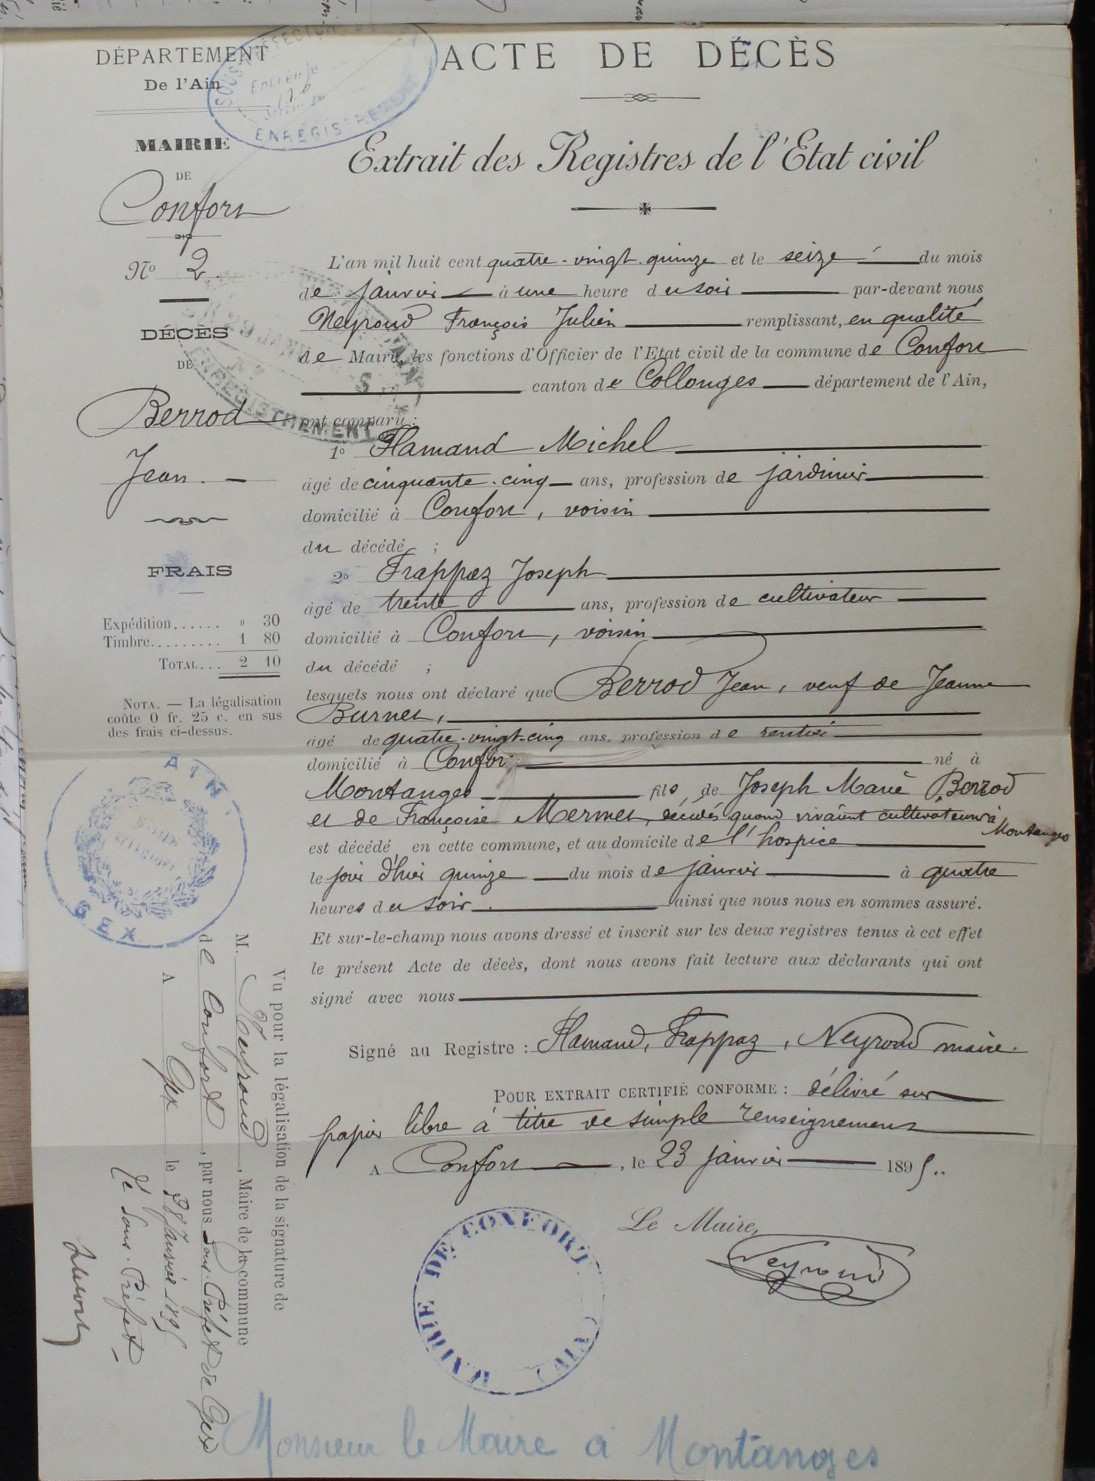 DÉPARTEMENT
De l'Ain
MAIRIE
DE
Confort
Nº 2
DÉCÈS
DE
Berrod
Jean.
FRAIS
Expédition...... » 30
Timbre......... 1 80
TOTAL... 2 10
NOTA. — La légalisation
coûte 0 fr. 25 c. en sus
des frais ci-dessus.
ENREGISTREMENT
ENREGISTREMENT
ACTE DE DÉCÈS
Extrait des Registres de l'Etat civil
L'an mil huit cent quatre-vingt-quinze et le seize du mois
de janvier à une heure du soir par-devant nous
Neyroud François Julien remplissant, en qualité
de Maire, les fonctions d'Officier de l'Etat civil de la commune de Confort
canton de Collonges département de l'Ain,
ont comparu :
1º Flamand Michel
âgé de cinquante-cinq ans, profession de jardinier
domicilié à Confort, voisin
du décédé ;
2º Frappaz Joseph
âgé de trente ans, profession de cultivateur
domicilié à Confort, voisin
du décédé ;
lesquels nous ont déclaré que Berrod Jean, veuf de Jeanne
Burnet,
âgé de quatre-vingt-cinq ans, profession de rentier
domicilié à Confort né à
Montanges fils de Joseph Marie Berrod
et de Françoise Mermet, décédés quand vivaient cultivateurs à
Montanges
est décédé en cette commune, et au domicile de l'hospice
le jour d'hier quinze du mois de janvier à quatre
heures du soir. ainsi que nous nous en sommes assuré.
Et sur-le-champ nous avons dressé et inscrit sur les deux registres tenus à cet effet
le présent Acte de décès, dont nous avons fait lecture aux déclarants qui ont
signé avec nous
Signé au Registre : Flamand, Frappaz, Neyroud maire.
POUR EXTRAIT CERTIFIÉ CONFORME : délivré sur
papier libre à titre de simple renseignement
A Confort, le 23 janvier 1895.
Le Maire,
Neyroud
MAIRIE DE CONFORT
(AIN)
AIN
GEX
Vu pour la légalisation de la signature de
M. Neyroud, Maire de la commune
de Confort, par nous Sous-Préfet de Gex
A Gex le 28 Janvier 1895
Le Sous-Préfet
Monsieur le Maire à Montanges